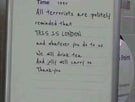 Time
All terrorists are politely
reminded that
THIS IS LONDON
and whatever you do to us
we will drink tea
and jolly well carry on
Thank you